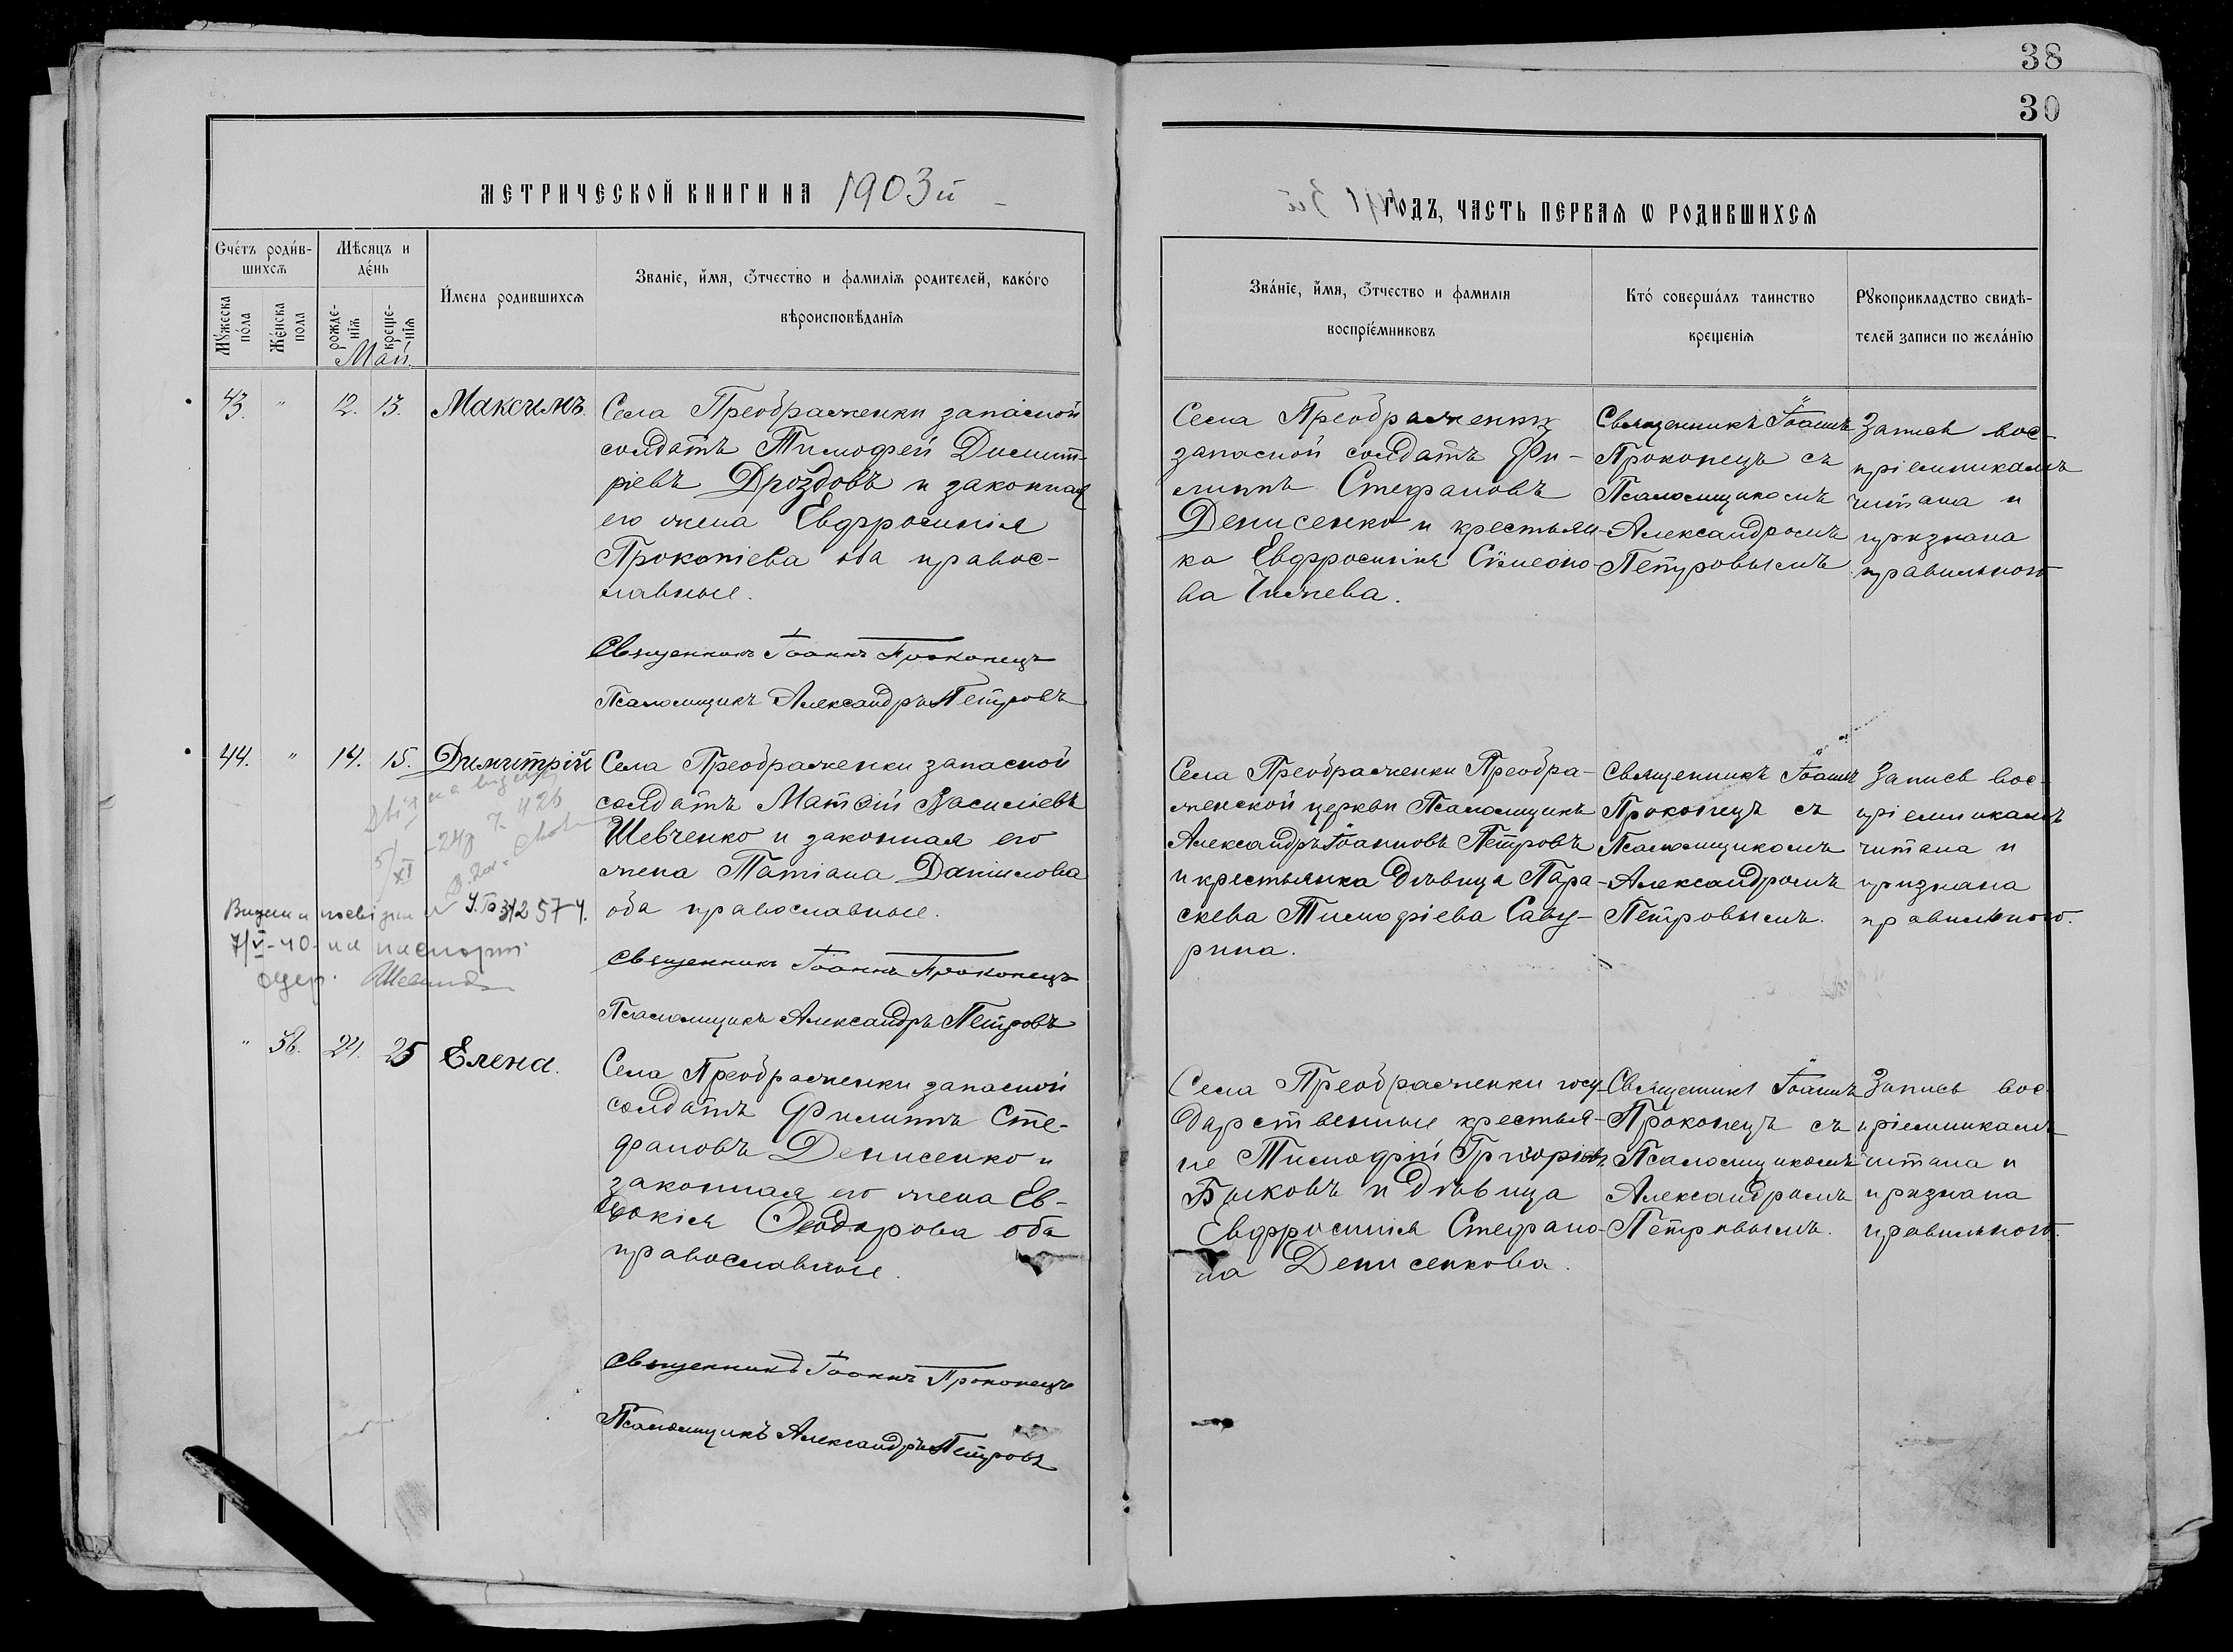 38
30
МЕТРИЧЕСКОЙ КНИГИ НА 1903й
ГОДЪ, ЧАСТЬ ПЕРВАѦ Ѡ РОДИВШИХСѦ
Счётъ роди́в-
шихсѧ
Мѣсѧцъ и
де́нь
Мꙋжеска
по́ла
Же́нска
пола
рожде-
нїѧ
креще-
нїѧ
Май.
И́мена родившихсѧ
Званїе, и́мѧ, ѻ҆тчество и фамилїѧ родителей, како́го
вѣроисповѣданїѧ
Зва́нїе, и́мѧ, ѻ҆тчество и фамилїѧ
воспрїе́мниковъ
Кто́ соверша́лъ таинство
крещенїѧ
Рꙋкоприкладство свидѣ-
телей записи по жела́нїю
43. " 12. 13. Максимъ.
Села Преображенки запасной
солдатъ Тимофей Димит-
ріевъ Дроздовъ и законная
его жена Евфросинія
Прокопіева оба правос-
лавные.
Священникъ Іоаннъ Прокопецъ
Псаломщикъ Александръ Петровъ
Села Преображенки
запасной солдатъ Фи-
липпъ Стефановъ
Денисенко и крестьян-
ка Евфросинія Сѵмеоно-
ва
Священникъ Іоаннъ
Прокопецъ съ
Псаломщикомъ
Александромъ
Петровымъ
Запись вос-
пріемникамъ
читана и
признана
правильною
44. " 14. 15. Димитрій
Села Преображенки запасной
солдатъ Матѳій Васильевъ
Шевченко и законная его
жена Татіана Даніилова
оба православные.
Священникъ Іоаннъ Прокопецъ
Псаломщикъ Александръ Петровъ
5/XI
312574.
7/V-40- на паспорт
Села Преображенки Преобра-
женской церкви Псаломщикъ
Александръ Іоанновъ Петровъ
и крестьянка дѣвица Пара-
скева Тимофіева Саву-
рина.
Священникъ Іоаннъ
Прокопецъ съ
Псаломщикомъ
Александромъ
Петровымъ.
Запись вос-
пріемникамъ
читана и
признана
правильною.
" 36. 24. 25 Елена.
Села Преображенки запасной
солдатъ Филиппъ Сте-
фановъ Денисенко и
законная его жена Ев-
докія Ѳеодорова оба
православные.
Священникъ Іоаннъ Прокопецъ
Псаломщикъ Александръ Петровъ
Села Преображенки госу-
дарственные крестья-
не Тимофій Григоріевъ
Быковъ и дѣвица
Евфросинія Стефано-
на Денисенкова.
Священникъ Іоаннъ
Прокопецъ съ
Псаломщикомъ
Александромъ
Петровымъ.
Запись вос-
пріемникамъ
читана и
признана
правильною.